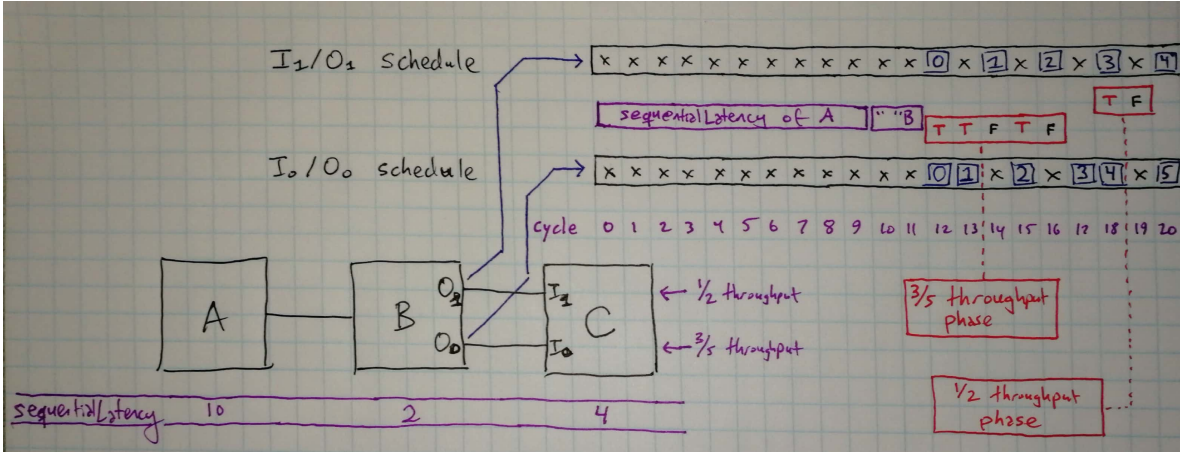 I1/O1 schedule
x x x x x x x x x x x x 0 x 1 x 2 x 3 x 4
sequentialLatency of A
" " B
T F
T T F T F
I0/O0 schedule
x x x x x x x x x x x x 0 1 x 2 x 3 4 x 5
cycle 0 1 2 3 4 5 6 7 8 9 10 11 12 13 14 15 16 17 18 19 20
A
B
O1
O0
I1
I0
C
← 1/2 throughput
← 3/5 throughput
3/5 throughput
phase
1/2 throughput
phase
sequentialLatency 10 2 4